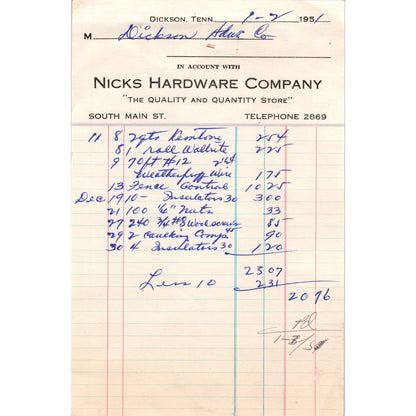 DICKSON, TENN. 1-2 1951
M Dickson Hdwe Co
IN ACCOUNT WITH
NICKS HARDWARE COMPANY
"THE QUALITY AND QUANTITY STORE"
SOUTH MAIN ST. TELEPHONE 2869
11 8 2 qts Kemtone 254
8 1 roll Wallrite 225
9 70 ft #12
Weatherproof Wire 175
13 Fence Control 1025
Dec 19 10- Insulators 30 300
21 100 1/4" Nuts 33
27 240 3/4 #8 Wood screws 85
29 2 Caulking Comp 45 90
30 4 Insulators 30 120
2307
Less 10 231
2076
Pd